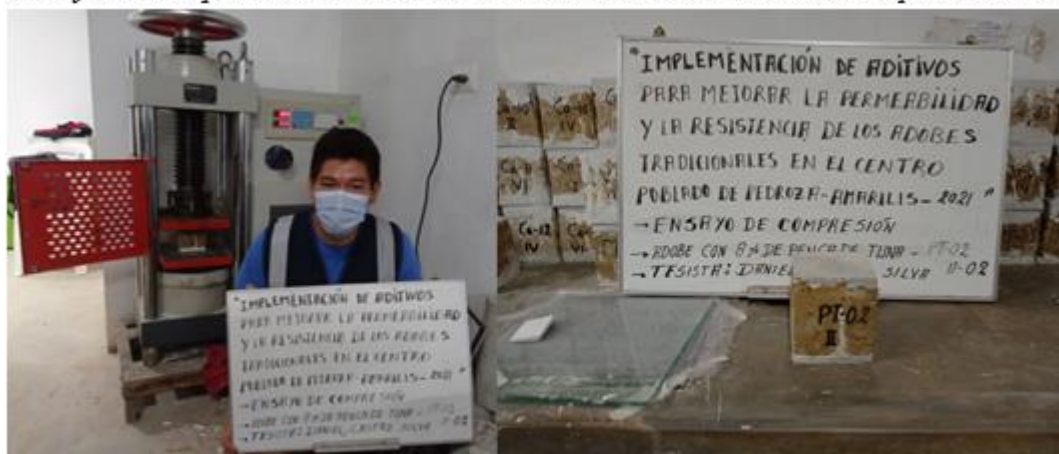 "IMPLEMENTACIÓN DE ADITIVOS
PARA MEJORAR LA PERMEABILIDAD
Y LA RESISTENCIA DE LOS ADOBES
TRADICIONALES EN EL CENTRO
POBLADO DE PEDROZA-AMARILIS-2021"
→ENSAYO DE COMPRESIÓN
→ADOBE CON 8% DE PENCA DE TUNA - PT-02
→TESISTA: DANIEL CASTRO SILVA II-02
"IMPLEMENTACIÓN DE ADITIVOS
PARA MEJORAR LA PERMEABILIDAD
Y LA RESISTENCIA DE LOS ADOBES
TRADICIONALES EN EL CENTRO
POBLADO DE PEDROZA-AMARILIS-2021"
→ENSAYO DE COMPRESIÓN
→ADOBE CON 8% DE PENCA DE TUNA - PT-02
→TESISTA: DANIEL SILVA II-02
PT-02
II
Ca-12
IV